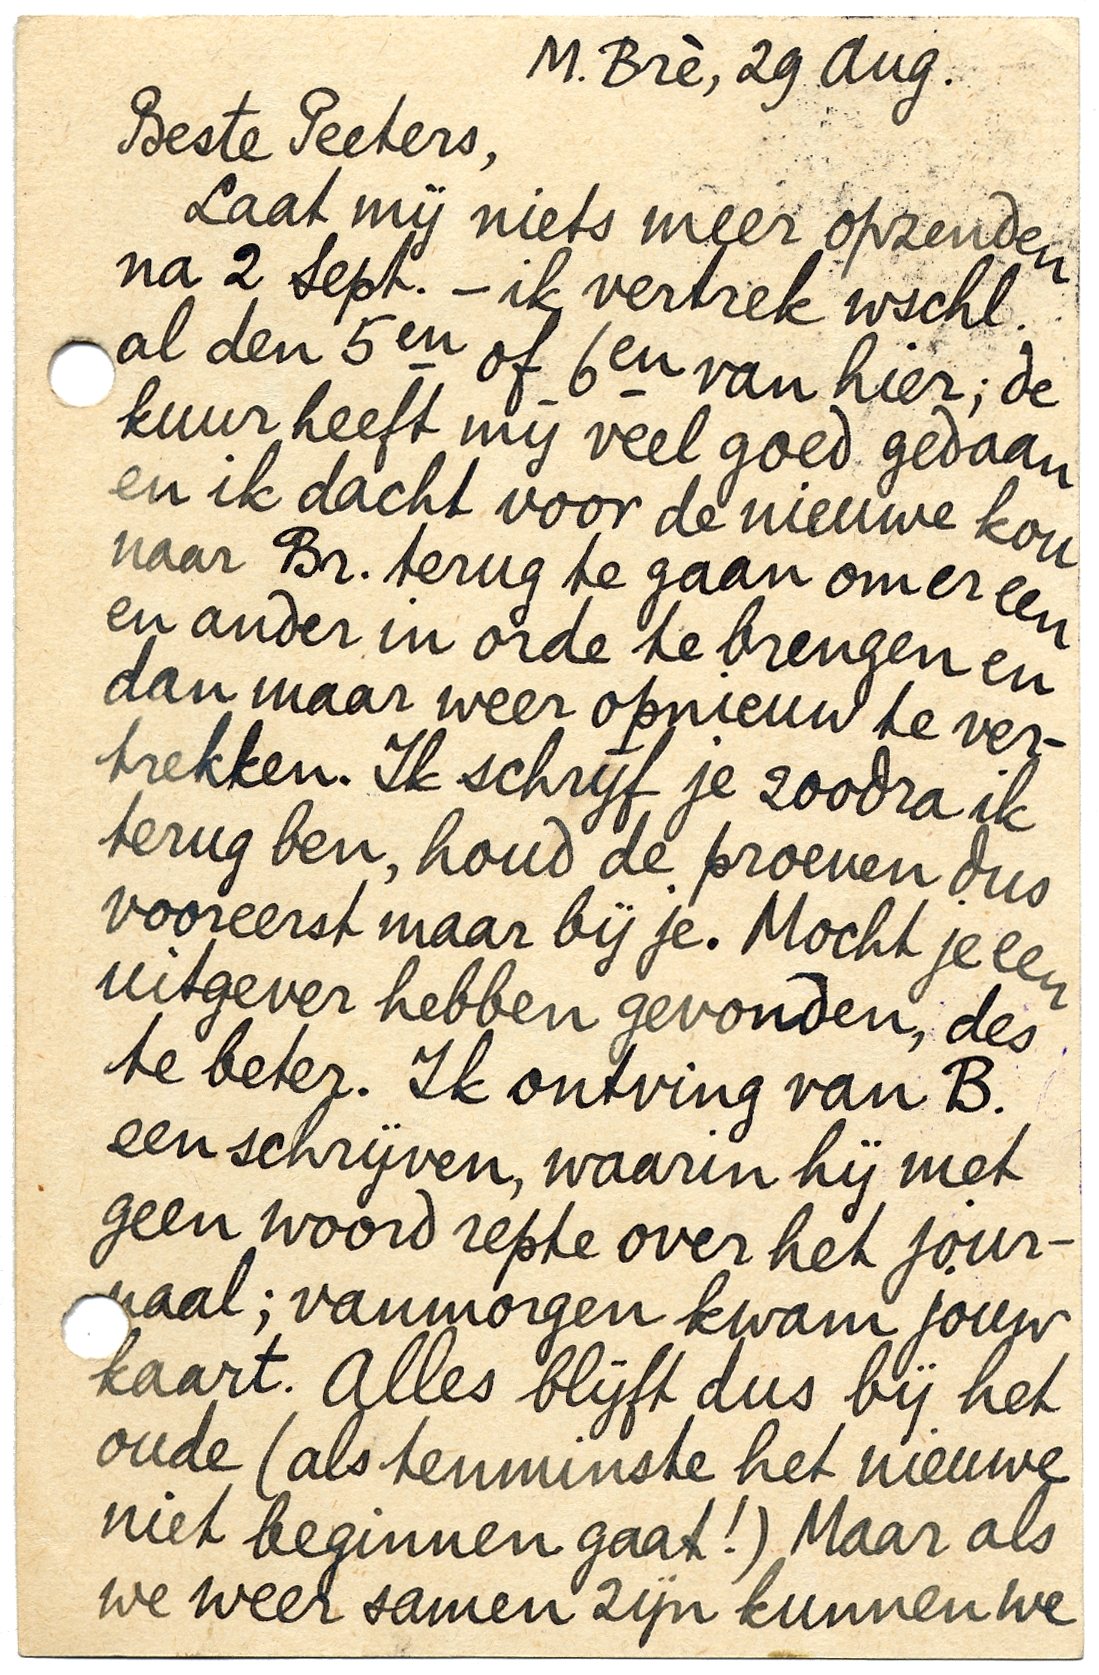 M. Brè, 29 Aug.
Beste Peeters,
Laat mij niets meer opzenden
na 2 Sept. – ik vertrek wschl.
al den 5en of 6en van hier; de
kuur heeft mij veel goed gedaan
en ik dacht voor de nieuwe kou
naar Br. terug te gaan om er een
en ander in orde te brengen en
dan maar weer opnieuw te ver-
trekken. Ik schrijf je zoodra ik
terug ben, houd de proeven dus
vooreerst maar bij je. Mocht je een
uitgever hebben gevonden, des
te beter. Ik ontving van B.
een schrijven, waarin hij met
geen woord repte over het jour-
naal; vanmorgen kwam jouw
kaart. Alles blijft dus bij het
oude (als tenminste het nieuwe
niet beginnen gaat!) Maar als
we weer samen zijn kunnen we